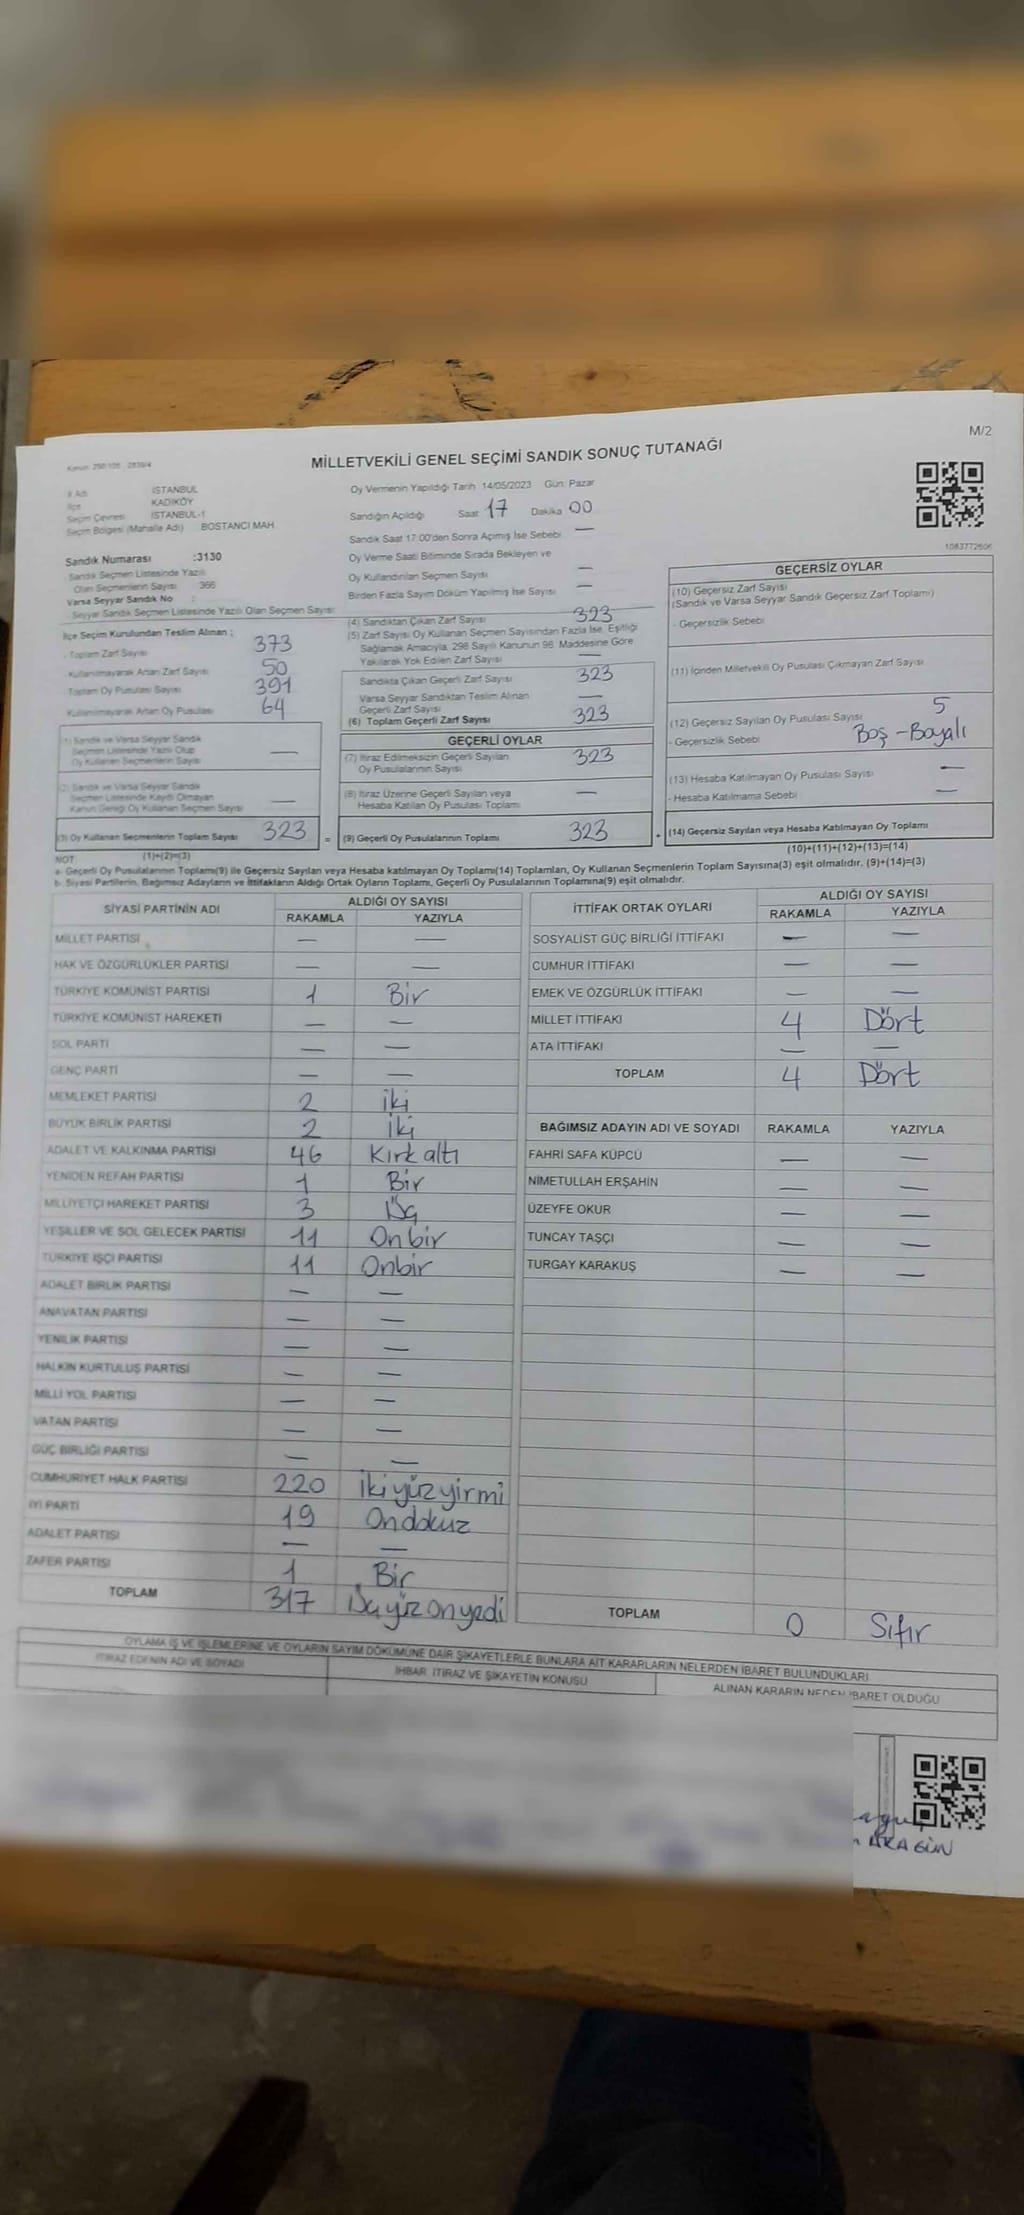 M/2
Kanun: 298/105 - 2839/4
MİLLETVEKİLİ GENEL SEÇİMİ SANDIK SONUÇ TUTANAĞI
İl Adı İSTANBUL
İlçe KADIKÖY
Seçim Çevresi İSTANBUL-1
Seçim Bölgesi (Mahalle Adı) BOSTANCI MAH.
Sandık Numarası :3130
Sandık Seçmen Listesinde Yazılı
Olan Seçmenlerin Sayısı 366
Varsa Seyyar Sandık No :
Seyyar Sandık Seçmen Listesinde Yazılı Olan Seçmen Sayısı:
Oy Vermenin Yapıldığı Tarih 14/05/2023 Gün: Pazar
Sandığın Açıldığı Saat 17 Dakika 00
Sandık Saat 17:00'den Sonra Açımış İse Sebebi —
Oy Verme Saati Bitiminde Sırada Bekleyen ve
Oy Kullandırılan Seçmen Sayısı —
Birden Fazla Sayım Döküm Yapılmış İse Sayısı —
1083772606
İlçe Seçim Kurulundan Teslim Alınan ;
- Toplam Zarf Sayısı 373
Kullanılmayarak Artan Zarf Sayısı 50
Toplam Oy Pusulası Sayısı 391
Kullanılmayarak Artan Oy Pusulası 64
(1) Sandık ve Varsa Seyyar Sandık
Seçmen Listesinde Yazılı Olup
Oy Kullanan Seçmenlerin Sayısı —
(2) Sandık ve Varsa Seyyar Sandık
Seçmen Listesinde Kaydı Olmayan
Kanun Gereği Oy Kullanan Seçmen Sayısı —
(3) Oy Kullanan Seçmenlerin Toplam Sayısı 323 =
(4) Sandıktan Çıkan Zarf Sayısı 323
(5) Zarf Sayısı Oy Kullanan Seçmen Sayısından Fazla İse, Eşitliği
Sağlamak Amacıyla, 298 Sayılı Kanunun 98. Maddesine Göre
Yakılarak Yok Edilen Zarf Sayısı —
Sandıkta Çıkan Geçerli Zarf Sayısı 323
Varsa Seyyar Sandıktan Teslim Alınan
Geçerli Zarf Sayısı —
(6) Toplam Geçerli Zarf Sayısı 323
GEÇERLİ OYLAR
(7) İtiraz Edilmeksizin Geçerli Sayılan
Oy Pusulalarının Sayısı 323
(8) İtiraz Üzerine Geçerli Sayılan veya
Hesaba Katılan Oy Pusulası Toplamı —
(9) Geçerli Oy Pusulalarının Toplamı 323 +
GEÇERSİZ OYLAR
(10) Geçersiz Zarf Sayısı
(Sandık ve Varsa Seyyar Sandık Geçersiz Zarf Toplamı)
- Geçersizlik Sebebi
(11) İçinden Milletvekili Oy Pusulası Çıkmayan Zarf Sayısı
(12) Geçersiz Sayılan Oy Pusulası Sayısı 5
- Geçersizlik Sebebi Boş-Boyalı
(13) Hesaba Katılmayan Oy Pusulası Sayısı —
- Hesaba Katılmama Sebebi —
(14) Geçersiz Sayılan veya Hesaba Katılmayan Oy Toplamı
NOT (1)+(2)=(3) (10)+(11)+(12)+(13)=(14)
a- Geçerli Oy Pusulalarının Toplamı(9) ile Geçersiz Sayılan veya Hesaba katılmayan Oy Toplamı(14) Toplamları, Oy Kullanan Seçmenlerin Toplam Sayısına(3) eşit olmalıdır. (9)+(14)=(3)
b- Siyasi Partilerin, Bağımsız Adayların ve İttifakların Aldığı Ortak Oyların Toplamı, Geçerli Oy Pusulalarının Toplamına(9) eşit olmalıdır.
SİYASİ PARTİNİN ADI ALDIĞI OY SAYISI
RAKAMLA YAZIYLA
MİLLET PARTİSİ — —
HAK VE ÖZGÜRLÜKLER PARTİSİ — —
TÜRKİYE KOMÜNİST PARTİSİ 1 Bir
TÜRKİYE KOMÜNİST HAREKETİ — —
SOL PARTİ — —
GENÇ PARTİ — —
MEMLEKET PARTİSİ 2 iki
BÜYÜK BİRLİK PARTİSİ 2 iki
ADALET VE KALKINMA PARTİSİ 46 Kırkaltı
YENİDEN REFAH PARTİSİ 1 Bir
MİLLİYETÇİ HAREKET PARTİSİ 3 Üç
YEŞİLLER VE SOL GELECEK PARTİSİ 11 Onbir
TÜRKİYE İŞÇİ PARTİSİ 11 Onbir
ADALET BİRLİK PARTİSİ — —
ANAVATAN PARTİSİ — —
YENİLİK PARTİSİ — —
HALKIN KURTULUŞ PARTİSİ — —
MİLLİ YOL PARTİSİ — —
VATAN PARTİSİ — —
GÜÇ BİRLİĞİ PARTİSİ — —
CUMHURİYET HALK PARTİSİ 220 ikiyüzyirmi
İYİ PARTİ 19 Ondokuz
ADALET PARTİSİ — —
ZAFER PARTİSİ 1 Bir
TOPLAM 317 Üçyüzonyedi
İTTİFAK ORTAK OYLARI ALDIĞI OY SAYISI
RAKAMLA YAZIYLA
SOSYALİST GÜÇ BİRLİĞİ İTTİFAKI — —
CUMHUR İTTİFAKI — —
EMEK VE ÖZGÜRLÜK İTTİFAKI — —
MİLLET İTTİFAKI 4 Dört
ATA İTTİFAKI — —
TOPLAM 4 Dört
BAĞIMSIZ ADAYIN ADI VE SOYADI RAKAMLA YAZIYLA
FAHRİ SAFA KÜPCÜ — —
NİMETULLAH ERŞAHİN — —
ÜZEYFE OKUR — —
TUNCAY TAŞÇI — —
TURGAY KARAKUŞ — —
TOPLAM 0 Sıfır
OYLAMA İŞ VE İŞLEMLERİNE VE OYLARIN SAYIM DÖKÜMÜNE DAİR ŞİKAYETLERLE BUNLARA AİT KARARLARIN NELERDEN İBARET BULUNDUKLARI
İTİRAZ EDENİN ADI VE SOYADI
İHBAR İTİRAZ VE ŞİKAYETİN KONUSU
ALINAN KARARIN NEDEN İBARET OLDUĞU
AKAGÜN